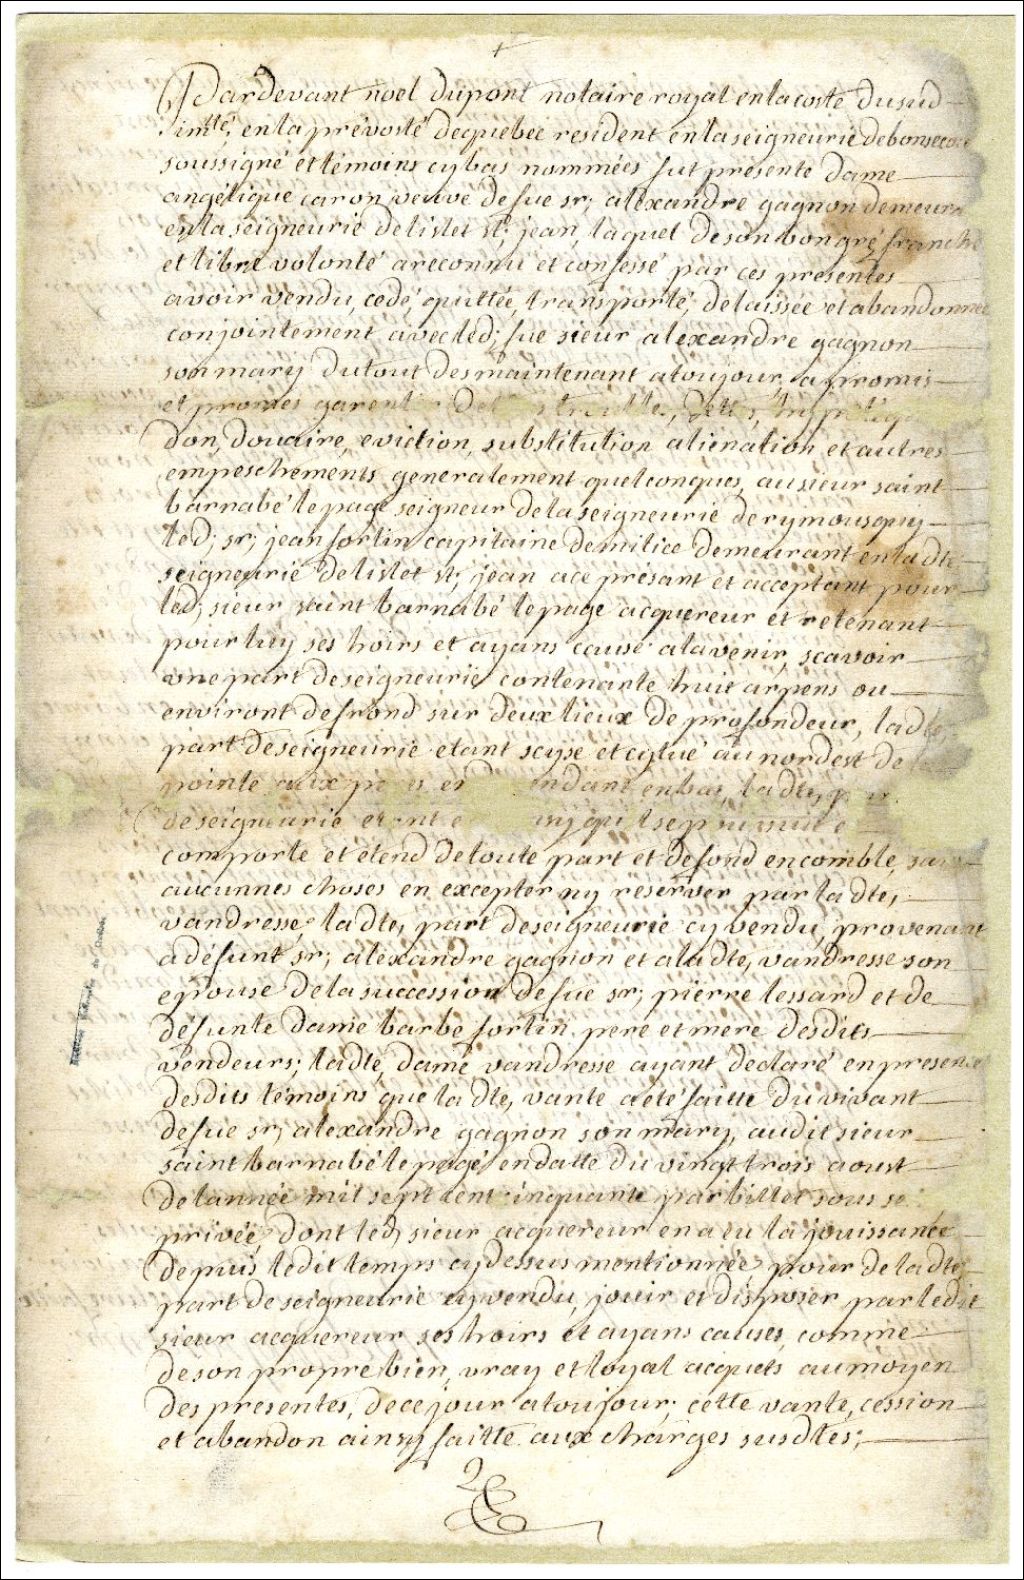 Pardevant noel dupont notaire royal en la coste du sud
limtté, en la prévosté de quebec resident en la seigneurie de bonsecour
soussigné et témoins cy bas nommées fut présente dame
angélique caron veuve de fue sr; alexandre gagnon demeurt
en la seigneurie de lislet st; jean, laquel de son bon gré franche
et libre volonté a reconnu et confessé par ces presentes
avoir vendu, cedé, quittée, transporté, delaissée et abandonnée
conjointement avec led; fue sieur alexandre gagnon
son mary du tout des maintenant a toujour, a promis
et promes garentir de troubles, dettes, hypotèque
don, douaire, eviction, substitution alienation et autres
empeschements generalement quelconques, au sieur saint
barnabé lepage seigneur de la seigneurie de rymousquy
led; sr; jean fortin capitaine de milice demeurant en ladte
seigneurie de lislet st; jean a ce présant et acceptant pour
led; sieur saint barnabé lepage acquereur et retenant
pour luy ses hoirs et ayans cause a lavenir, scavoir
une part de seigneurie contenante huit arpens ou
environt de frond sur deux lieux de profondeur, ladte
part de seigneurie etant scyse et cytué au nordest de
pointe aux en bas, ladte,
de seigneurie
comporte et étend de toute part et de fond en comble, sans
aucunnes choses en excepter ny réserver par ladte,
vandresse, ladte, part de seigneurie cy vendu, provenant
a défunt sr; alexandre gagnon et a ladte, vandresse son
epouse de la succession de fue sr; pierre lessard et de
défunte dame barbe fortin pere et mere desdits
vendeurs; ladte, dame vandresse ayant déclaré en presence
desdits témoins que la dte, vante a été faitte du vivant
de fue sr; alexandre gagnon son mary, audit sieur
saint barnabé lepage en datte du vingt trois aoust
de lannée mil sept cent cinquante par billet sous se
privéé, dont led, sieur acquereur en a eu la jouissance
depuis ledit temps cy dessus mentionnée pour de ladte,
part de seigneurie cy vendu, jouir et disposer par ledit
sieur acquereur ses hoirs et ayans causes, comme
de son propre bien, vray et loyal acquets au moyen
des presentes, de ce jour a toujour; cette vante, cession
et abandon ainsy faitte aux charges susdtes;